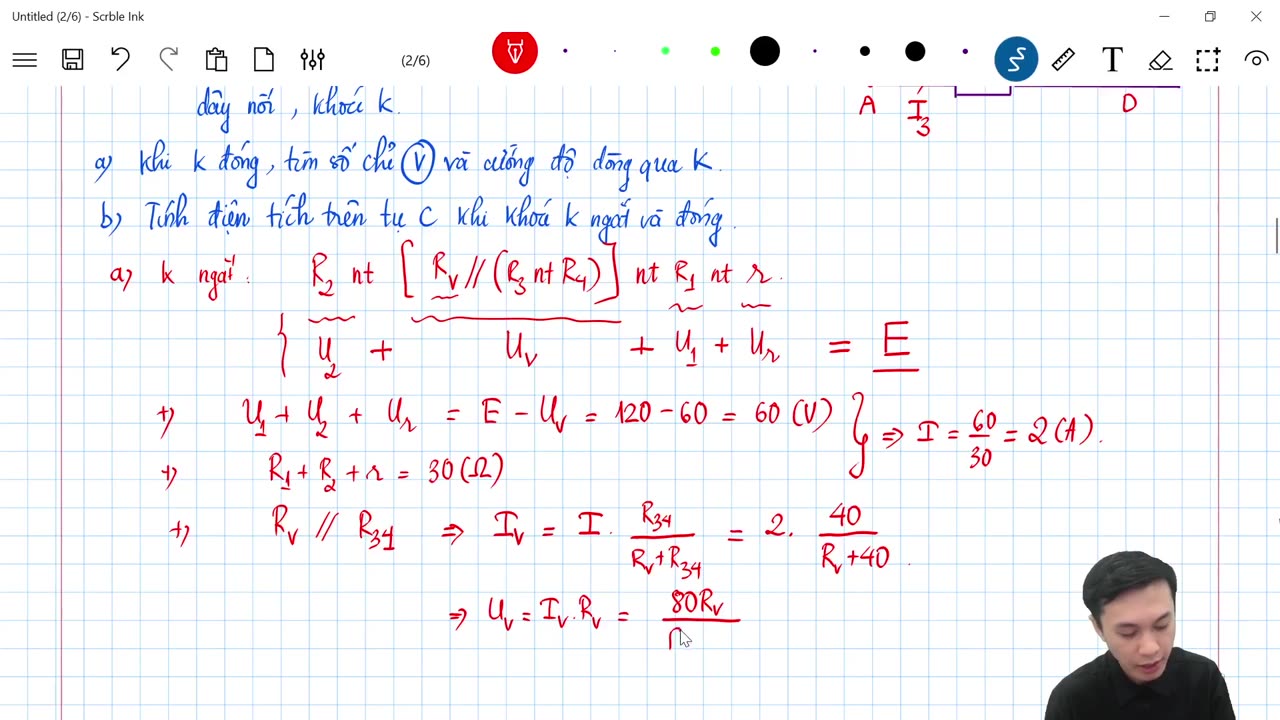 Untitled (2/6) - Scrble Ink
(2/6)
T
dây nối, khoá k.
A I3 D
a) khi k đóng, tìm số chỉ (V) và cường độ dòng qua K.
b) Tính điện tích trên tụ C khi khoá k ngắt và đóng.
a) k ngắt: R2 nt [Rv // (R3 nt R4)] nt R1 nt r.
{ U2 + Uv + U1 + Ur = E
+) U1 + U2 + Ur = E - Uv = 120 - 60 = 60 (V)
+) R1 + R2 + r = 30 (Ω)
} ⇒ I = 60/30 = 2 (A).
+) Rv // R34 ⇒ Iv = I . R34/(Rv + R34) = 2. 40/(Rv + 40).
⇒ Uv = Iv . Rv = 80Rv